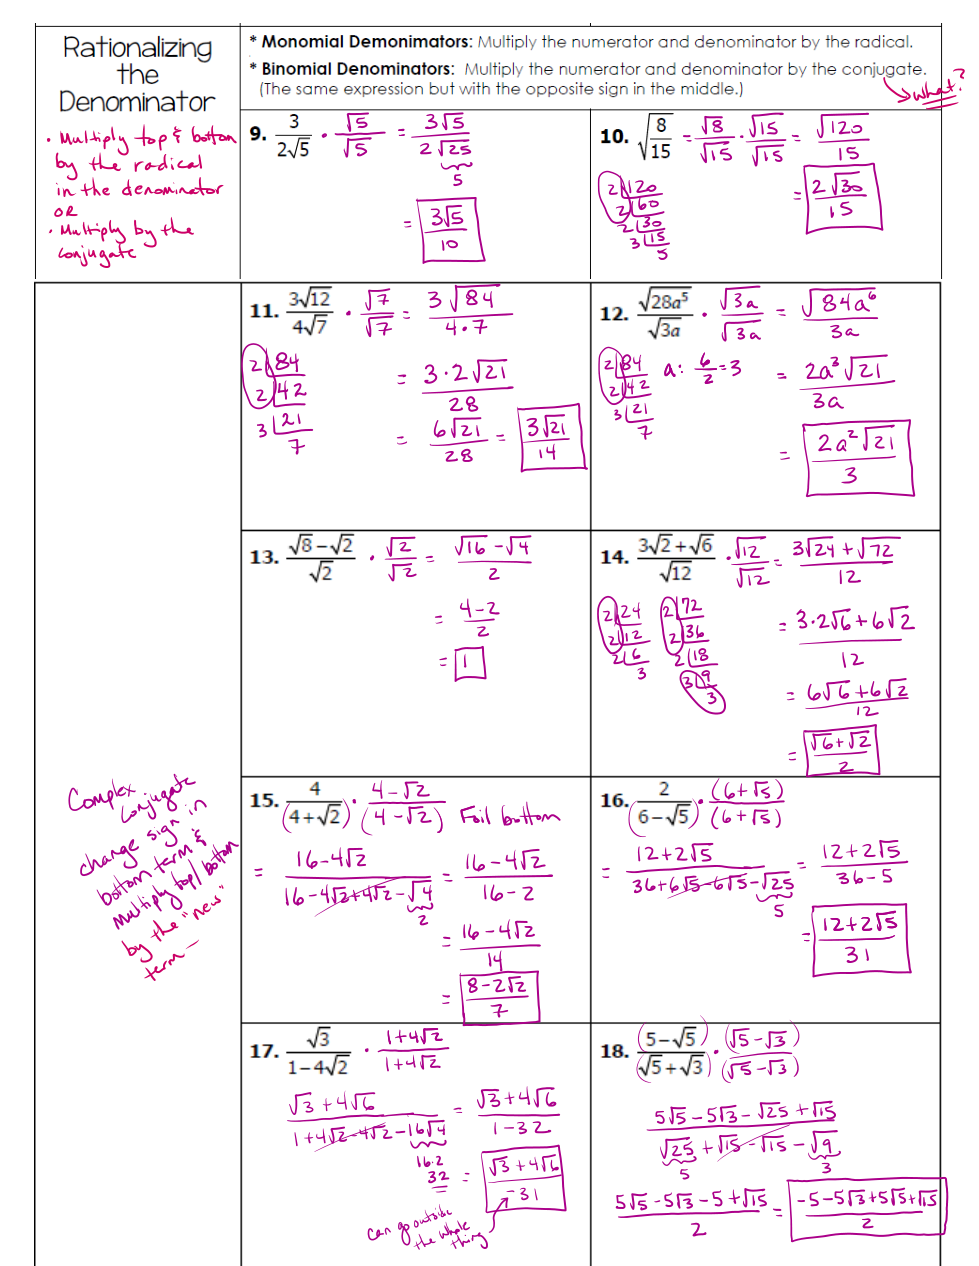 Rationalizing
the
Denominator
• Multiply top & bottom
by the radical
in the denominator
OR
• Multiply by the
conjugate
* Monomial Demonimators: Multiply the numerator and denominator by the radical.
* Binomial Denominators: Multiply the numerator and denominator by the conjugate.
(The same expression but with the opposite sign in the middle.)
what?
9. 3/(2√5) • √5/√5 = 3√5/(2√25)
5
= 3√5/10
10. √(8/15) = √8/√15 • √15/√15 = √120/15
= 2√30/15
2|120
2|60
2|30
3|15
5
11. 3√12/(4√7) • √7/√7 = 3√84/(4•7)
2|84
2|42
3|21
7
= 3•2√21/28
= 6√21/28 = 3√21/14
12. √(28a⁵)/√(3a) • √(3a)/√(3a) = √(84a⁶)/(3a)
2|84
2|42
3|21
7
a: 6/2 = 3
= 2a³√21/(3a)
= 2a²√21/3
13. (√8 − √2)/√2 • √2/√2 = (√16 − √4)/2
= (4−2)/2
= 1
14. (3√2 + √6)/√12 • √12/√12 = (3√24 + √72)/12
2|24
2|12
2|6
3
2|72
2|36
2|18
3|9
3
= (3•2√6 + 6√2)/12
= (6√6 + 6√2)/12
= (√6 + √2)/2
Complex
conjugate
change sign in
bottom term &
multiply top/bottom
by the "new"
term –
15. 4/(4+√2) • (4−√2)/(4−√2) Foil bottom
= (16−4√2)/(16−4√2+4√2−√4) = (16−4√2)/(16−2)
2
= (16−4√2)/14
= (8−2√2)/7
16. 2/(6−√5) • (6+√5)/(6+√5)
= (12+2√5)/(36+6√5−6√5−√25) = (12+2√5)/(36−5)
5
= (12+2√5)/31
17. √3/(1−4√2) • (1+4√2)/(1+4√2)
(√3+4√6)/(1+4√2−4√2−16√4) = (√3+4√6)/(1−32)
16•2
32
= (√3+4√6)/−31
can go outside
the whole
thing
18. (5−√5)/(√5+√3) • (√5−√3)/(√5−√3)
(5√5−5√3−√25+√15)/(√25+√15−√15−√9)
5 3
(5√5−5√3−5+√15)/2 = (−5−5√3+5√5+√15)/2